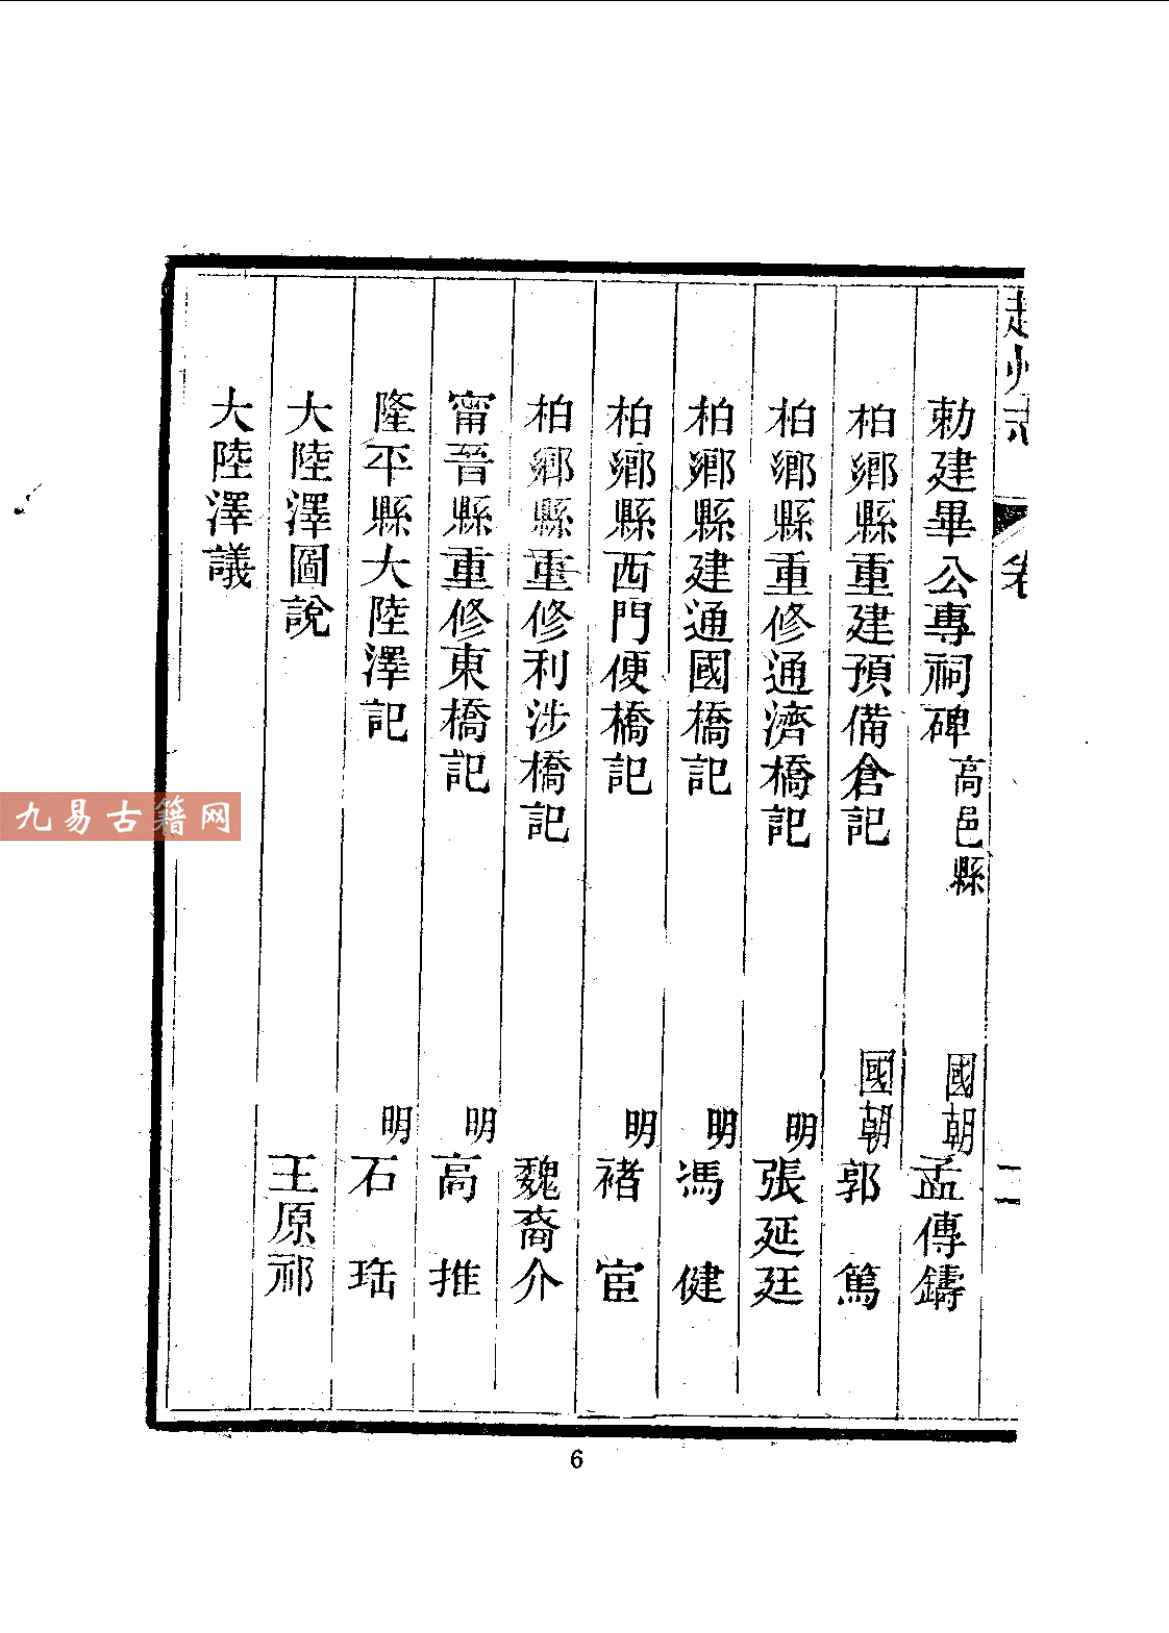 趙州志 卷 二
勅建畢公專祠碑 高邑縣 國朝 孟傳鑄
柏鄉縣重建預備倉記 國朝 郭篤
柏鄉縣重修通濟橋記 明 張延廷
柏鄉縣建通國橋記 明 馮健
柏鄉縣西門便橋記 明 褚宦
柏鄉縣重修利涉橋記 魏裔介
甯晉縣重修東橋記 明 高推
隆平縣大陸澤記 明 石珤
大陸澤圖說 王原祁
大陸澤議
九易古籍网
6